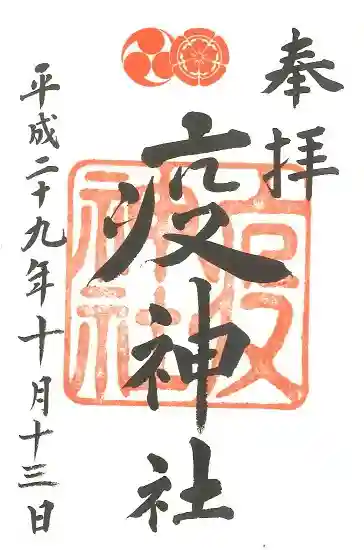 奉拝
疫神社
疫神社
平成二十九年十月十三日